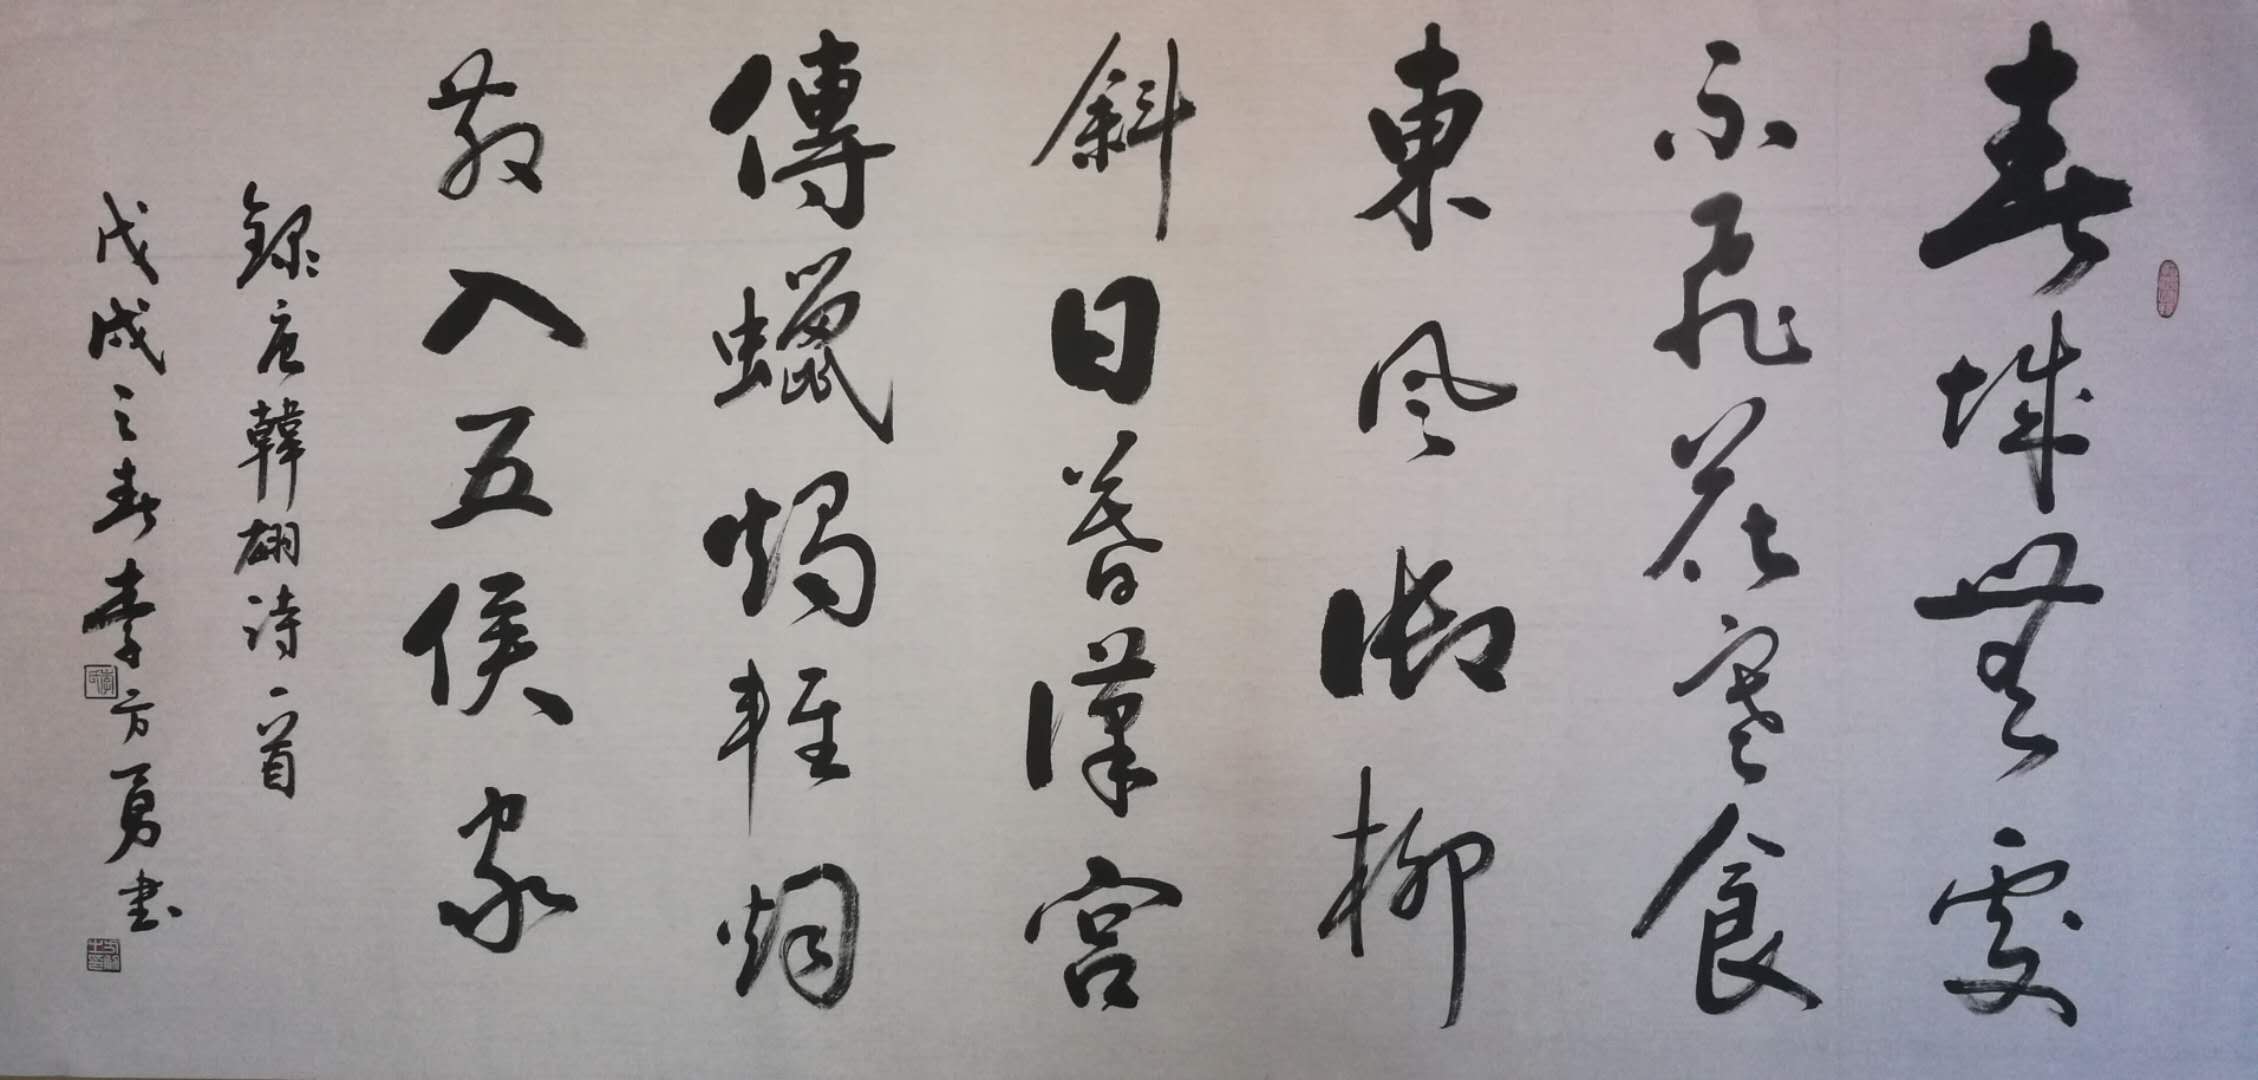 春城無處
不飛花寒食
東風御柳
斜日暮漢宮
傳蠟燭輕烟
散入五侯家
録唐韓翃詩一首
戊戌之春李方勇書